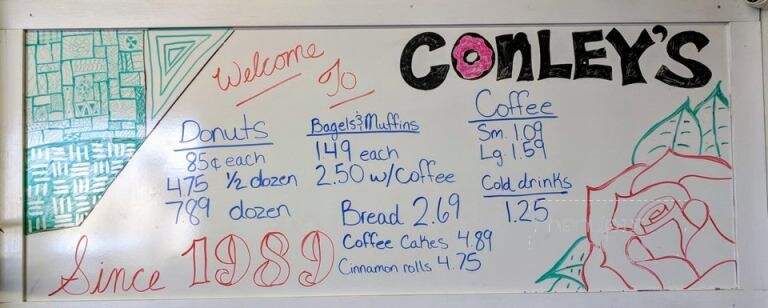 Welcome To
CONLEY'S
Donuts
85¢ each
475 ½ dozen
789 dozen
Bagels & Muffins
149 each
2.50 w/Coffee
Coffee
Sm. 1.09
Lg. 1.59
Cold drinks
1.25
Bread 2.69
Coffee Cakes 4.89
Cinnamon rolls 4.75
Since 1989